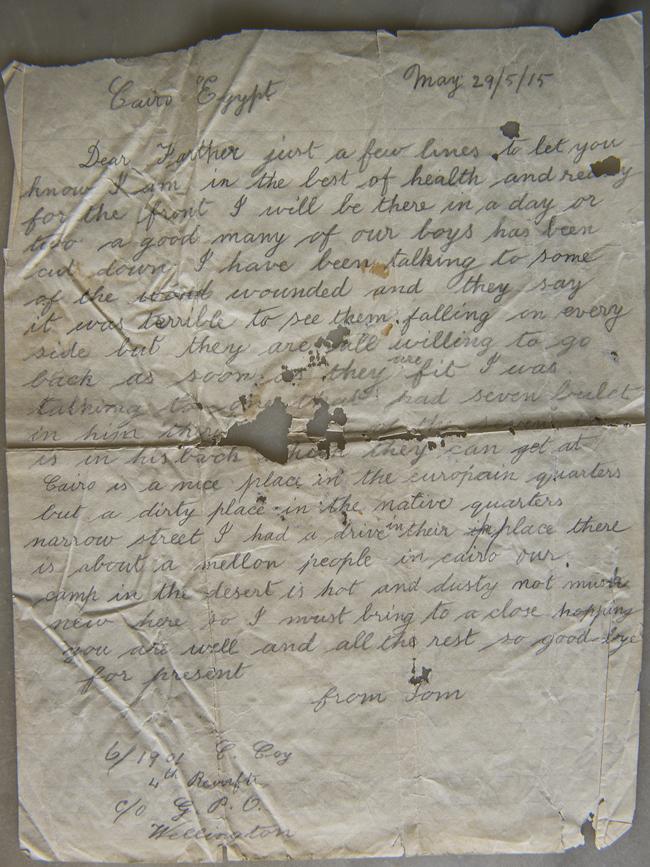 Cairo Egypt
May 29/5/15
Dear Farther just a few lines to let you
know I am in the best of health and ready
for the front I will be there in a day or
two a good many of our boys has been
cut down I have been talking to some
of the wound wounded and they say
it was terrible to see them falling on every
side but they are all willing to go
back as soon as they are fit I was
talking to had seven bulet
in him
is in his back they can get at
Cairo is a nice place in the europain quarters
but a dirty place in the native quarters
narrow street I had a drive in their place there
is about a mellon people in cairo our
camp in the desert is hot and dusty not much
new here so I must bring to a close hopping
you are well and all the rest so good bye
for present
from Tom
6/1901 C. Coy
4th Reinft
c/o G. P. O.
Wellington